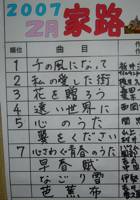 2007
2月
家路
順位 曲目
1 千の風になって
2 私の愛した街
3 花を贈ろう
4 遠い世界に
5 心のうた
翼をください
7 心さわぐ青春のうた
早春賦
なごり雪
芭蕉布